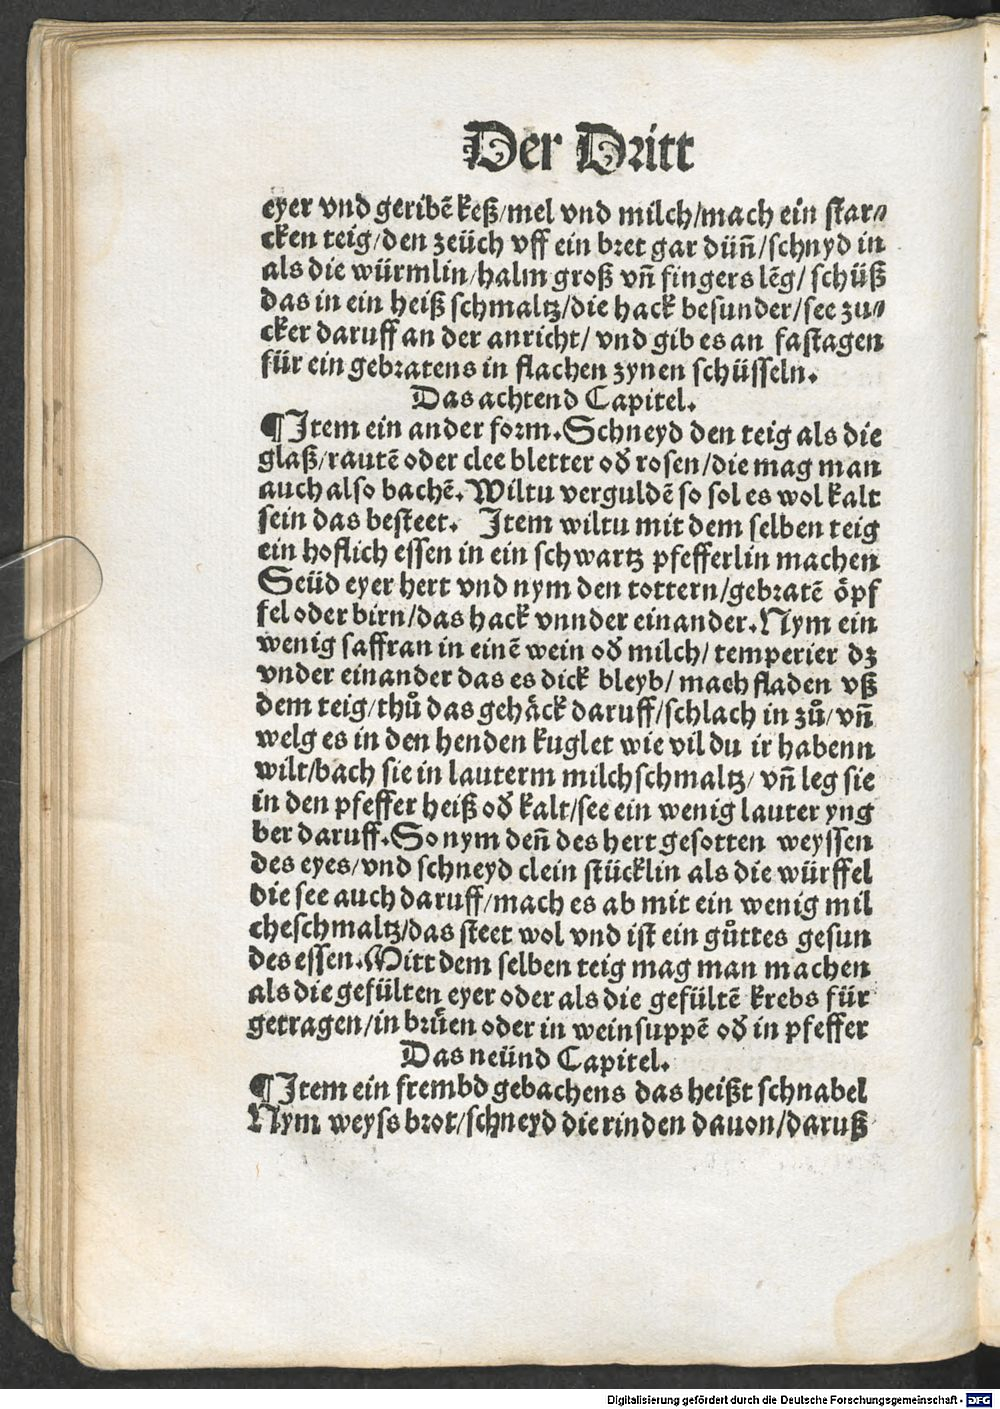 Der Dritt
eyer vnd geribẽ keß/mel vnd milch/mach ein star⸗
cken teig/den zeüch vff ein bret gar düñ/schnyd in
als die würmlin/halm groß vñ fingers lẽg/ schüß
das in ein heiß schmaltz/die hack besunder/see zu⸗
cker daruff an der anricht/ vnd gib es an fastagen
für ein gebratens in flachen zynen schüsseln.
Das achtend Capitel.
¶Item ein ander form.Schneyd den teig als die
glaß/rautẽ oder clee bletter oð rosen/die mag man
auch also bachẽ.Wiltu verguldẽ so sol es wol kalt
sein das besteet. Item wiltu mit dem selben teig
ein hoflich essen in ein schwartz pfefferlin machen
Seüd eyer hert vnd nym den tottern/gebratẽ öpf
fel oder birn/das hack vnnder einander.Nym ein
wenig saffran in einẽ wein oð milch/ temperier dz
vnder einander das es dick bleyb/ mach fladen vß
dem teig/thů das gehäck daruff/schlach in zů/vñ
welg es in den henden kuglet wie vil du ir habenn
wilt/bach sie in lauterm milchschmaltz/ vñ leg sie
in den pfeffer heiß oð kalt/see ein wenig lauter yng
ber daruff.So nym deñ des hert gesotten weyssen
des eyes/vnd schneyd clein stücklin als die würffel
die see auch daruff/mach es ab mit ein wenig mil
cheschmaltz/das steet wol vnd ist ein gůttes gesun
des essen.Mitt dem selben teig mag man machen
als die gefülten eyer oder als die gefültẽ krebs für
getragen/in brüen oder in weinsuppẽ oð in pfeffer
Das neünd Capitel.
¶Item ein frembd gebachens das heißt schnabel
Nym weyss brot/schneyd die rinden dauon/daruß
Digitalisierung gefördert durch die Deutsche Forschungsgemeinschaft - DFG